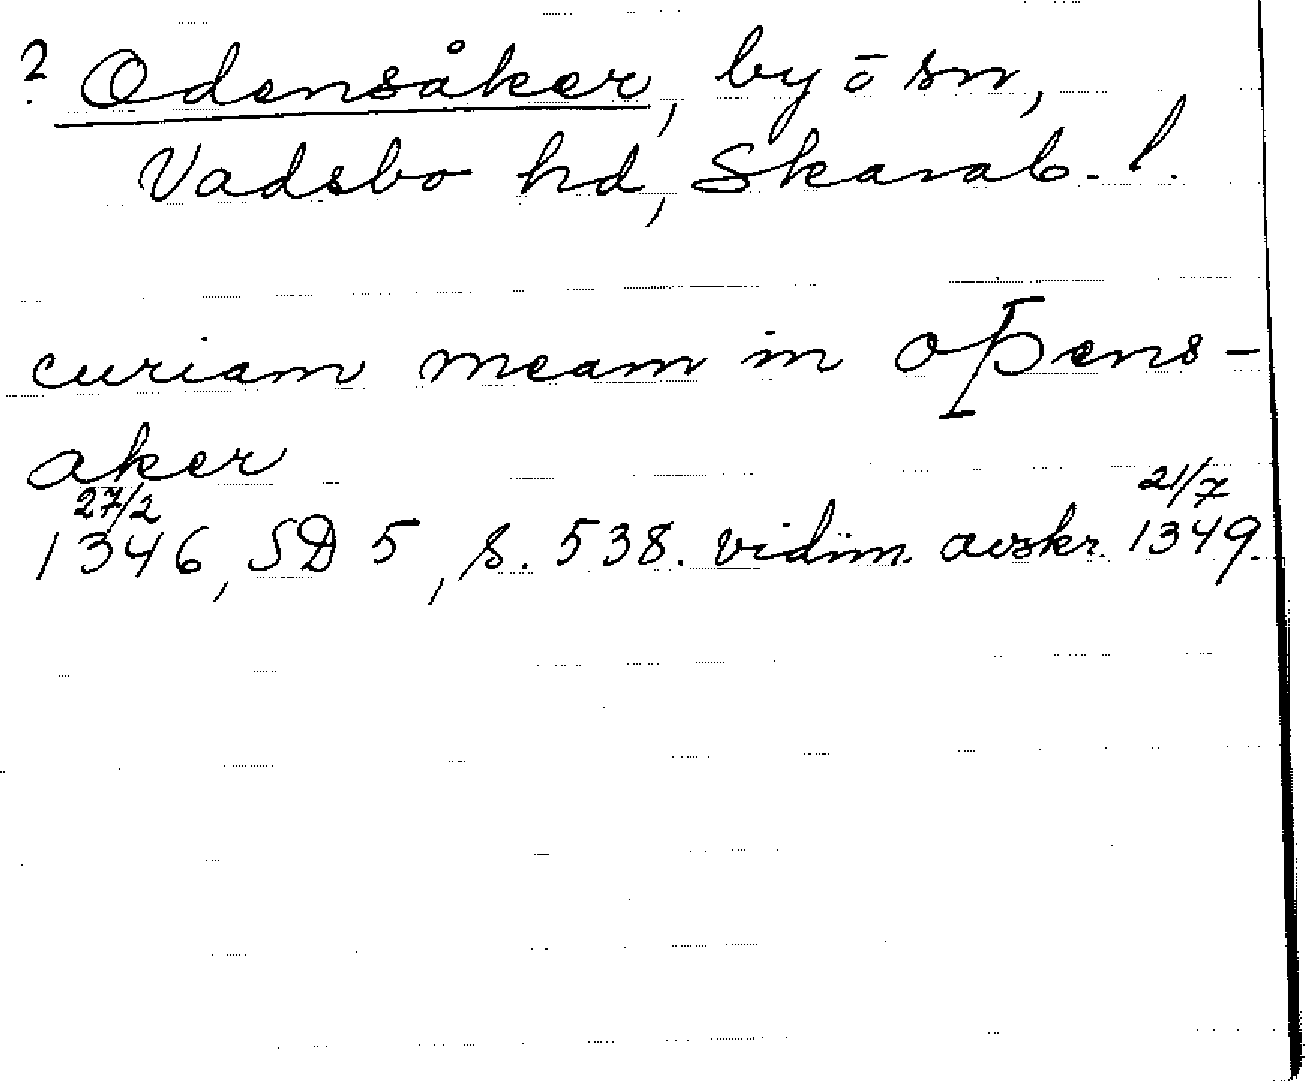 ? Odensåker, by o sn,
Vadsbo hd, Skarab. l.
curiam meam in oþens-
aker
27/2 21/7
1346, SD 5, s. 538. vidim. avskr. 1349.